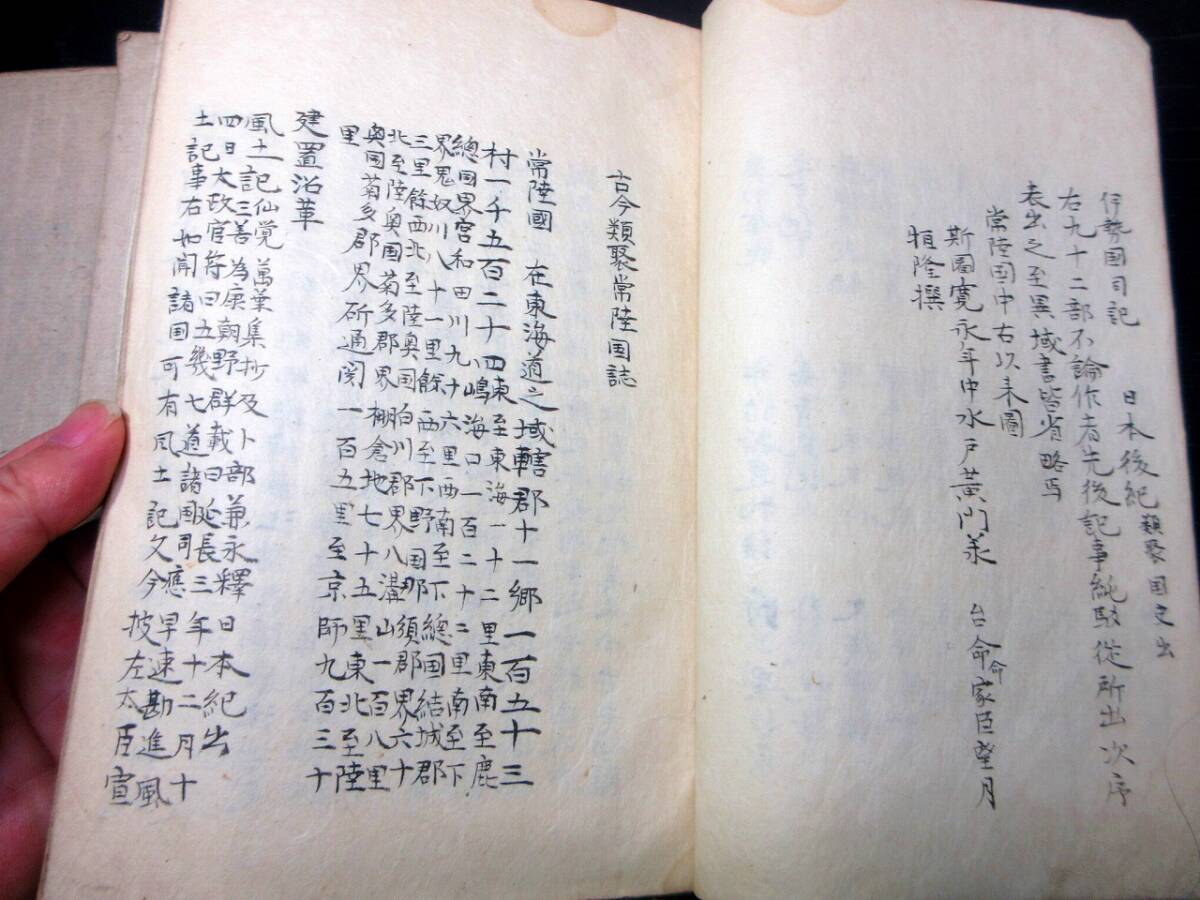 伊勢国司記　日本後紀類聚国史出
右九十二部不論作者先後記事純駁従所出次序
表出之至異域書皆省略焉
常陸国中右以来圖
斯圖寛永年中水戸黄門義　台命命家臣望月
恒隆撰
古今類聚常陸国誌
常陸國　在東海道之域轄郡十一郷一百五十三
村一千五百二十四東至東海一十二里東南至鹿
嶋海口一百二十二里南至下
總国界宮和田川九十六里西南至下總国結城郡
界鬼奴川八十一里餘西至下野国那須郡界六十
三里餘西北至陸奥国白川郡界八溝山一百八里
北至陸奥国菊多郡界棚倉地七十五里東北至陸
奥国菊多郡界斫通関一百五里至京師九百三十
里
建置沿革
風土記仙覚萬葉集抄及卜部兼永釋日本紀出
三善為康朝野群載曰延長三年十二月十
四日太政官符曰五幾七道諸国司應早速勘進風
土記事右如聞諸国可有風土記文今披左太臣宣